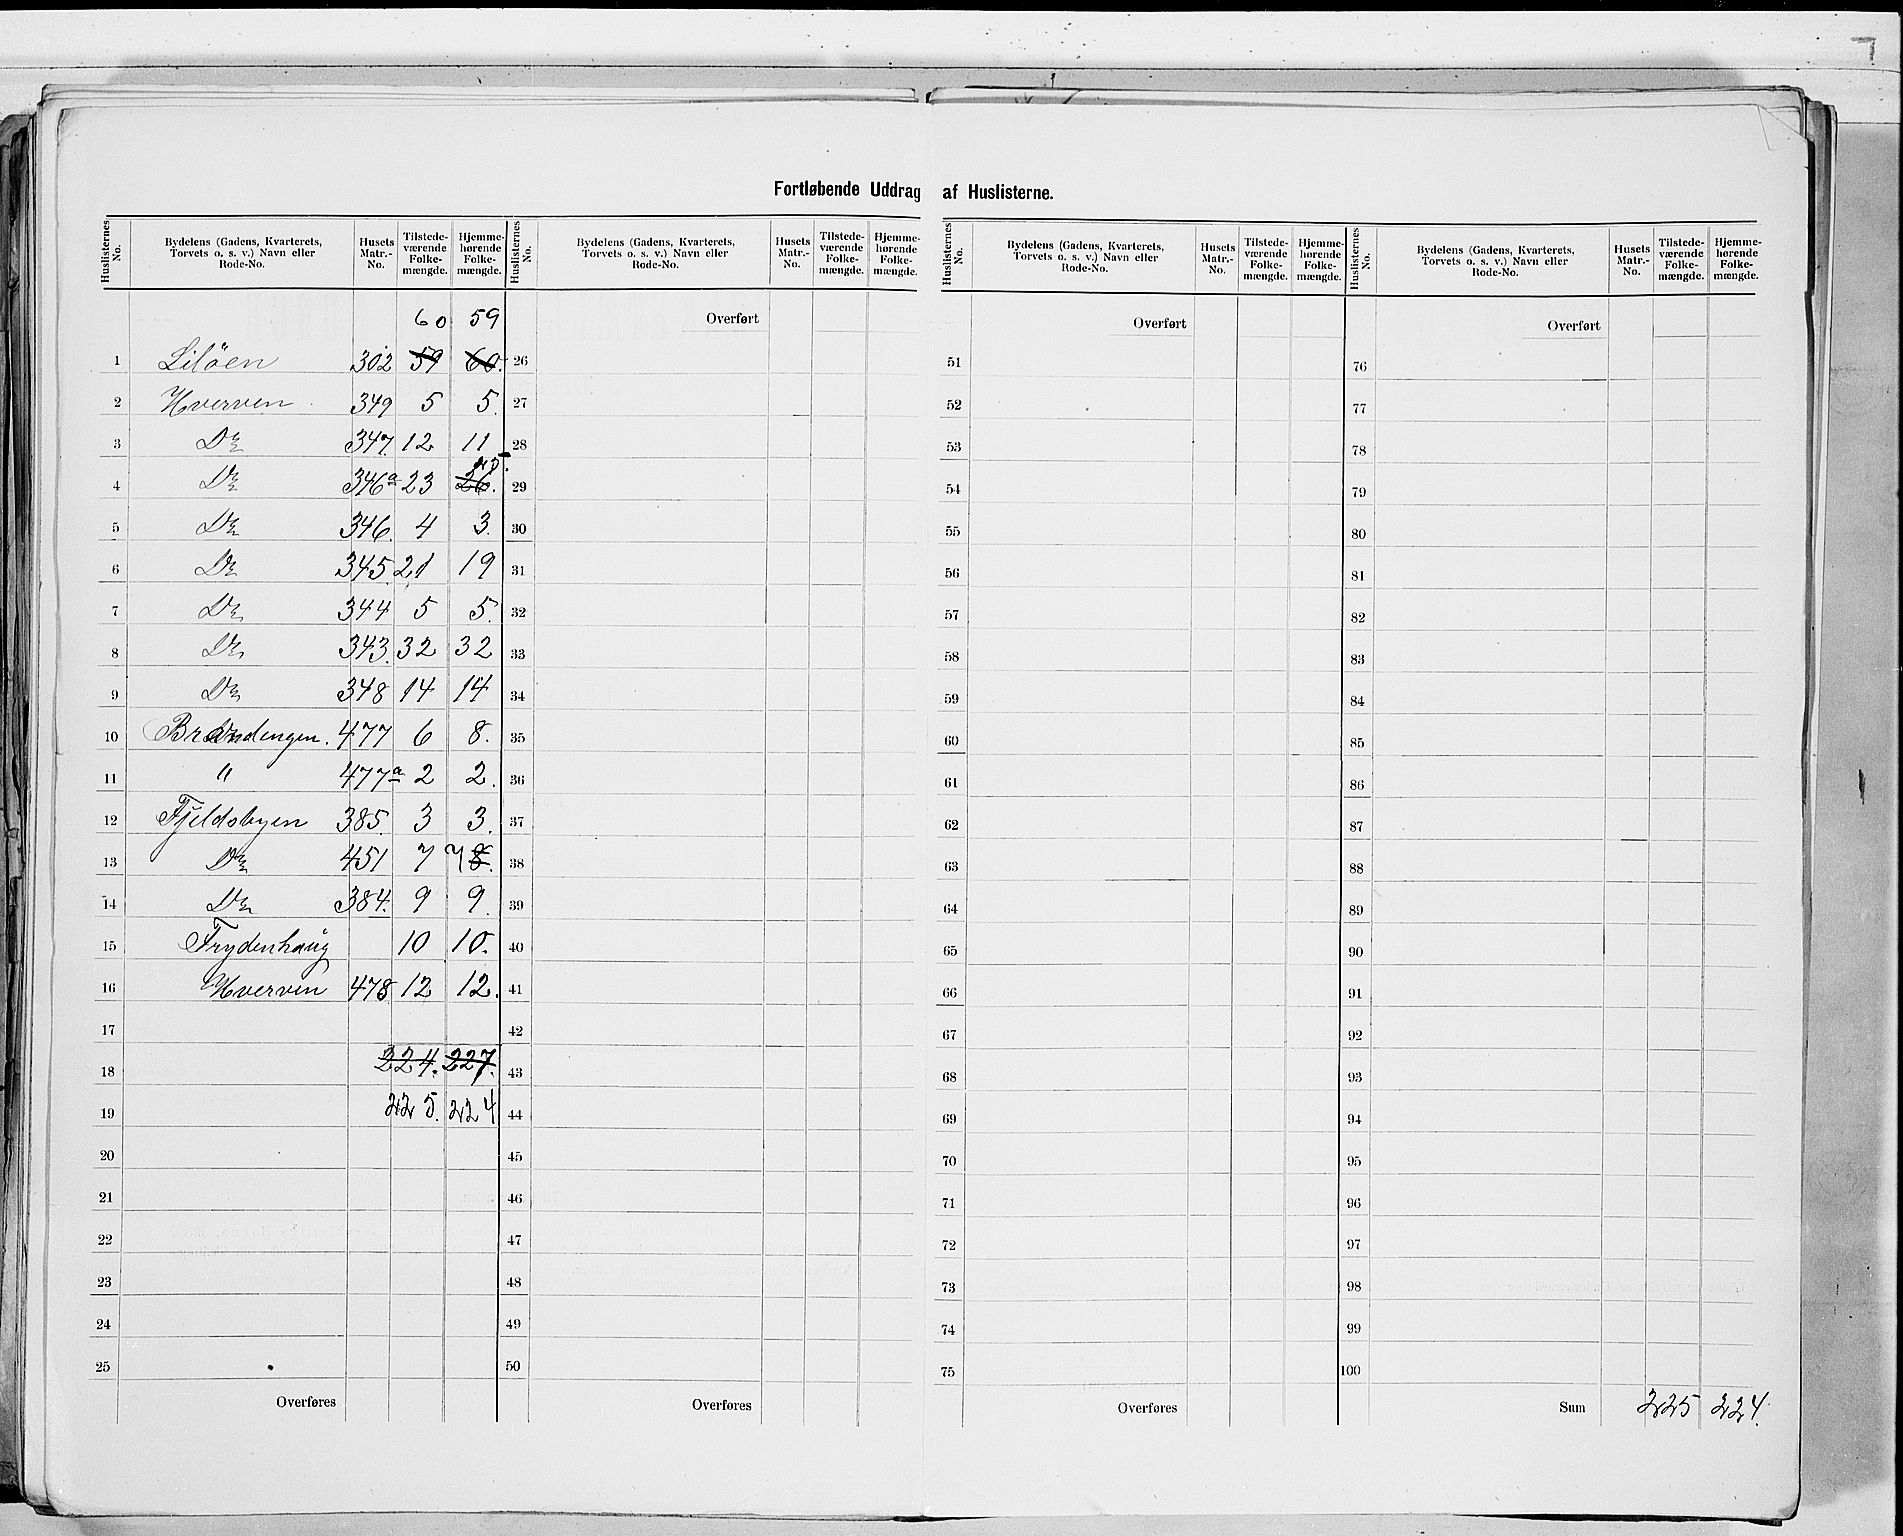 Fortløbende Uddrag af Huslisterne.
Huslisternes No. Bydelens (Gadens, Kvarterets, Torvets o. s. v.) Navn eller Rode-No. Husets Matr.-No. Tilstedeværende Folkemængde. Hjemmehørende Folkemængde.
Huslisternes No. Bydelens (Gadens, Kvarterets, Torvets o. s. v.) Navn eller Rode-No. Husets Matr.-No. Tilstedeværende Folkemængde. Hjemmehørende Folkemængde.
Huslisternes No. Bydelens (Gadens, Kvarterets, Torvets o. s. v.) Navn eller Rode-No. Husets Matr.-No. Tilstedeværende Folkemængde. Hjemmehørende Folkemængde.
Huslisternes No. Bydelens (Gadens, Kvarterets, Torvets o. s. v.) Navn eller Rode-No. Husets Matr.-No. Tilstedeværende Folkemængde. Hjemmehørende Folkemængde.
60 59 Overført Overført Overført
1 Liløen 302 59 60. 26 51 76
2 Hverven 349 5 5. 27 52 77
3 Do 347. 12 11 28 53 78
4 Do 346a 23 26. 29 54 79
5 Do 346. 4 3. 30 55 80
6 Do 345. 21 19 31 56 81
7 Do 344 5 5. 32 57 82
8 Do 343. 32 32 33 58 83
9 Do 348 14 14 34 59 84
10 Brændengen. 477 6 8. 35 60 85
11 " 477a 2 2. 36 61 86
12 Fjeldsbyen 385. 3 3. 37 62 87
13 Do 451 7 7 8. 38 63 88
14 Do 384. 9 9. 39 64 89
15 Frydenhaug 10 10. 40 65 90
16 Hverven 478 12 12. 41 66 91
17 42 67 92
18 224. 227. 43 68 93
19 225. 224 44 69 94
20 45 70 95
21 46 71 96
22 47 72 97
23 48 73 98
24 49 74 99
25 50 75 100
Overføres Overføres Overføres Sum 225 224.